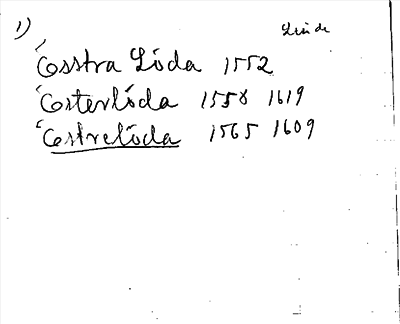 1) Linde
Östra Löda 1552
Österlöda 1558 1619
Östrelöda 1565 1609